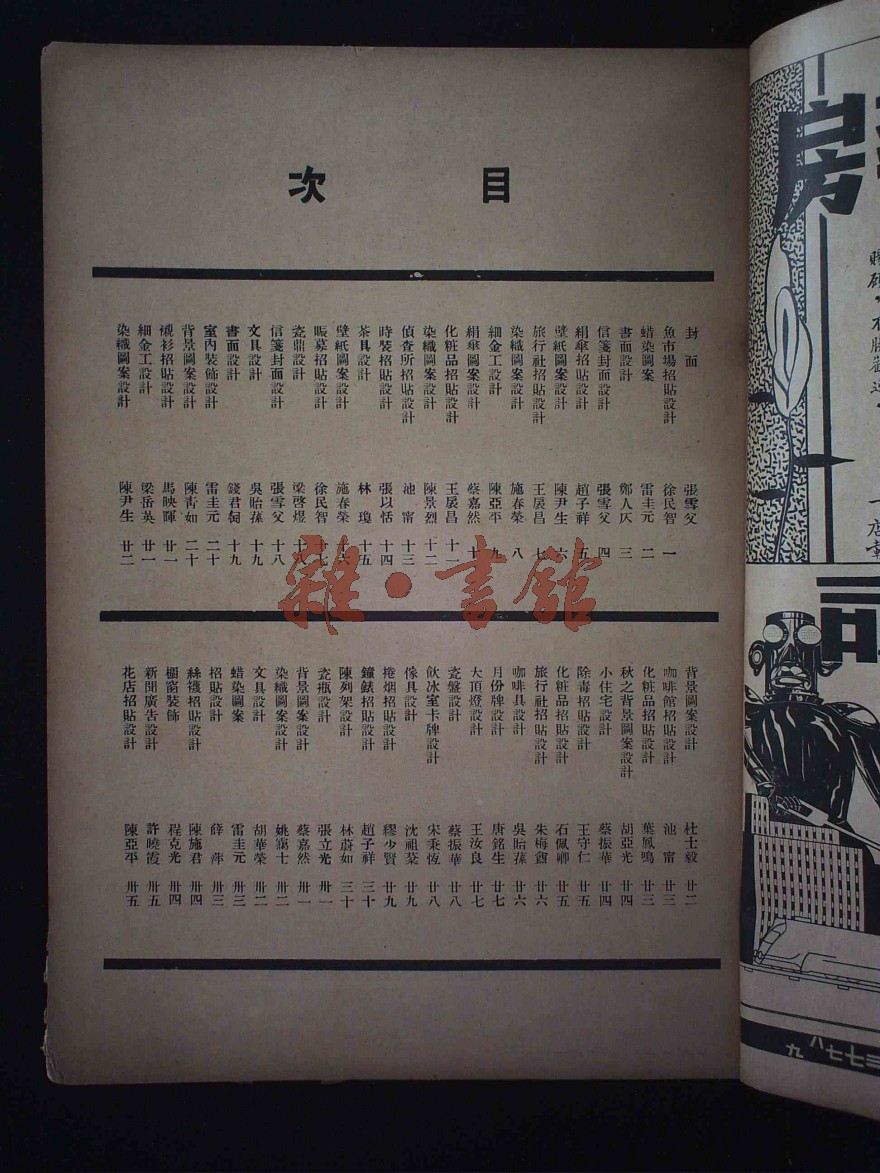 目次
封面 張雪父
魚市場招貼設計 徐民智 一
蜡染圖案 雷圭元 二
書面設計 鄭人仄 三
信箋封面設計 張雪父 四
絹傘招貼設計 趙子祥 五
壁紙圖案設計 陳尹生 六
旅行社招貼設計 王扆昌 七
染織圖案設計 施春榮 八
細金工設計 陳亞平 九
絹傘圖案設計 蔡嘉然 十
化粧品招貼設計 王扆昌 十一
染織圖案設計 陳景烈 十二
偵查所招貼設計 池甯 十三
時裝招貼設計 張以恬 十四
茶具設計 林瓊 十五
壁紙圖案設計 施春榮 十六
賑募招貼設計 徐民智 十七
瓷鼎設計 梁啓煜 十八
信箋封面設計 張雪父 十八
文具設計 吳貽蓀 十九
書面設計 錢君匋 十九
室內裝飾設計 雷圭元 二十
背景圖案設計 陳靑如 二十
襯衫招貼設計 馬映暉 廿一
細金工設計 梁岳英 廿一
染織圖案設計 陳尹生 廿二
背景圖案設計 杜士毅 廿二
咖啡館招貼設計 池甯 廿三
化粧品招貼設計 葉鳳鳴 廿三
秋之背景圖案設計 胡亞光 廿四
小住宅設計 蔡振華 廿四
除毒招貼設計 王守仁 廿五
化粧品招貼設計 石佩卿 廿五
旅行社招貼設計 朱梅馥 廿六
咖啡具設計 吳貽蓀 廿六
月份牌設計 唐銘生 廿七
大頂燈設計 王汝良 廿七
瓷盤設計 蔡振華 廿八
飲冰室卡牌設計 宋秉恆 廿八
傢具設計 沈祖棻 廿九
捲烟招貼設計 繆少賢 廿九
鐘錶招貼設計 趙子祥 三十
陳列架設計 林蔚如 三十
瓷瓶設計 張立光 卅一
背景圖案設計 蔡嘉然 卅一
染織圖案設計 姚藹士 卅二
文具設計 胡華榮 卅二
蜡染圖案 雷圭元 卅三
招貼設計 薛萍 卅三
絲襪招貼設計 陳施君 卅四
櫥窗裝飾 程克光 卅四
新聞廣告設計 許曉霞 卅五
花店招貼設計 陳亞平 卅五
雜·書館
房